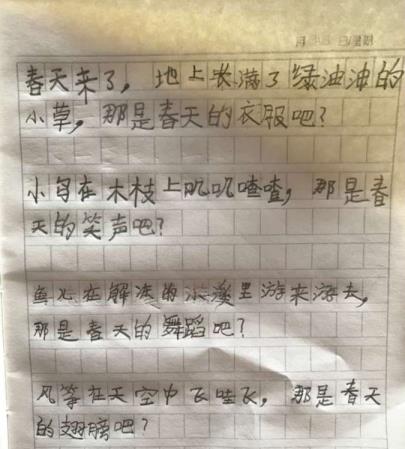 春天来了，地上长满了绿油油的
小草，那是春天的衣服吧？
小鸟在木枝上叽叽喳喳，那是春
天的笑声吧？
鱼儿在解冻的小溪里游来游去，
那是春天的舞蹈吧？
风筝在天空中飞哇飞，那是春天
的翅膀吧？